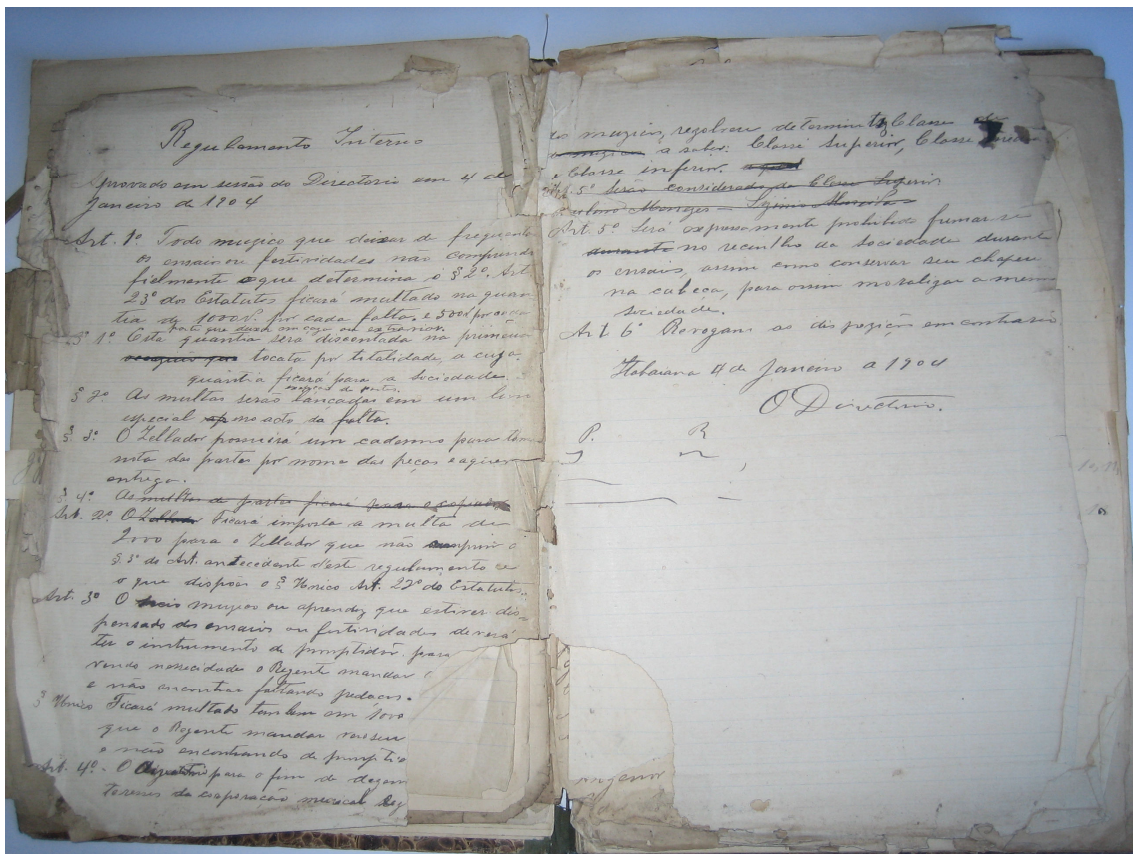 Regulamento Interno
Aprovado em sessão do Directorio em 4 de
Janeiro de 1904
Art. 1º Todo muzico que deixar de frequent
os ensaios ou festividades não comprende
fielmente o que determina o § 2º. Art.
23º dos Estatutos ficará multado na quan
tia de 1000 r. por cada falta. e 500 r por cada
parte que deixa em caza ou extravios.
§ 1º Esta quantia será discontada na primeira
tocata por totalidade, a cuja
quantia ficará para a Sociedade.
§ 2º As multas serão lançadas em um livro
especial no acto da falta.
§ 3º O Zellador possuirá um caderno para tom
nota das partes por nome das peças e
entrega.
§ 4º As multas de partes ficará para o copiador
Art. 2º O Zellador Ficará imposto a multa de
2000 para o Zellador que não cumprir o
§ 3º do Art. antecedente d'este regulamento e
o que dispõe o § Unico Art. 22º do Estatutos.
Art. 3º O muzico ou aprendiz que estiver dis-
pensado dos ensaios ou festividades deverá
ter o instrumento de promptidão para
vendo necessidade o Regente mandar
e não encontrar faltando pedaços.
§ Unico Ficará multado tambem em
que o Regente mandar ver seu
e não encontrando de prompti
Art. 4º - O Directorio para o fim de
teresses da corporação muzical
do muzico, resolveu determinar Classe de
a saber: Classe Superior, Classe
e Classe inferior.
Art. 5º Serão considerado da Classe Superior
Menezes
Art. 5º Será expressamente prohibido fumar-se
durante no recinto da Sociedade durante
os ensaios, assim como conservar seu chapeu
na cabeça, para assim moralizar a mesm
sociedade.
Art. 6º Revogam as dispozição em contrario
Itabaiana 4 de Janeiro de 1904
O Directorio.
P. R